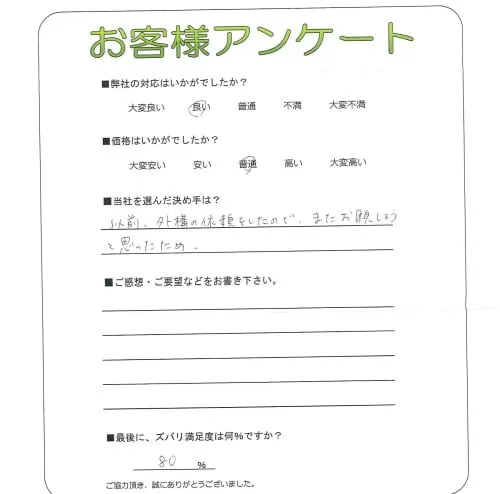 お客様アンケート
■弊社の対応はいかがでしたか？
大変良い 良い 普通 不満 大変不満
■価格はいかがでしたか？
大変安い 安い 普通 高い 大変高い
■当社を選んだ決め手は？
以前、外構の依頼をしたので、またお願しよう
と思ったため。
■ご感想・ご要望などをお書き下さい。
■最後に、ズバリ満足度は何％ですか？
80 ％
ご協力頂き、誠にありがとうございました。